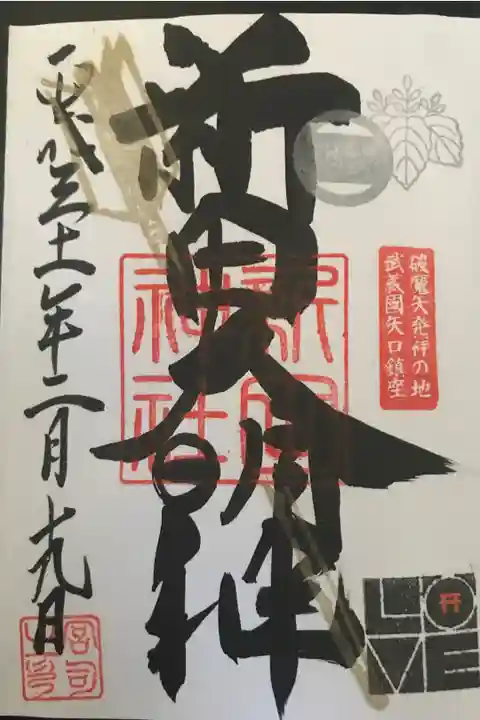 新田大明神
新田神社
破魔矢発祥の地
武蔵國矢口鎮座
平成三十一年二月十九日
宮司之印
LOVE